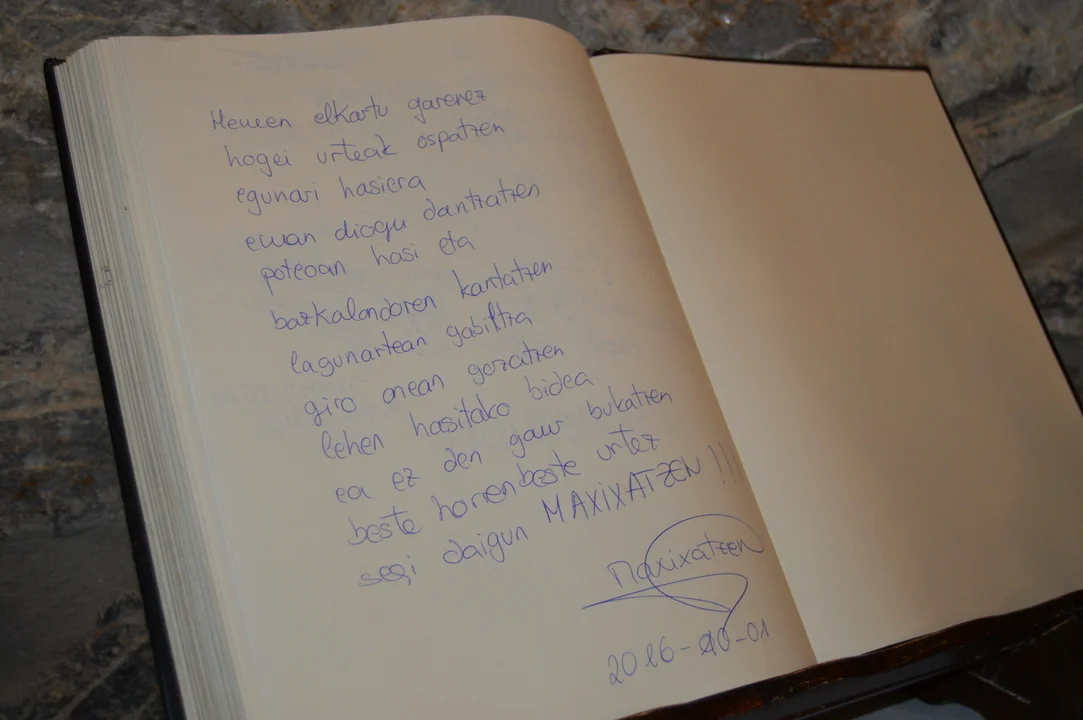 Hemen elkartu garenez
hogei urteak ospatzen
egunari hasiera
eman diogu dantzatzen
poteoan hasi eta
bazkalondoren kantatzen
lagunartean gabiltza
giro onean gozatzen
lehen hasitako bidea
ea ez den gaur bukatzen
beste horrenbeste urtez
segi daigun MAXIXATZEN !!!
Maxixatzen
2016-10-01